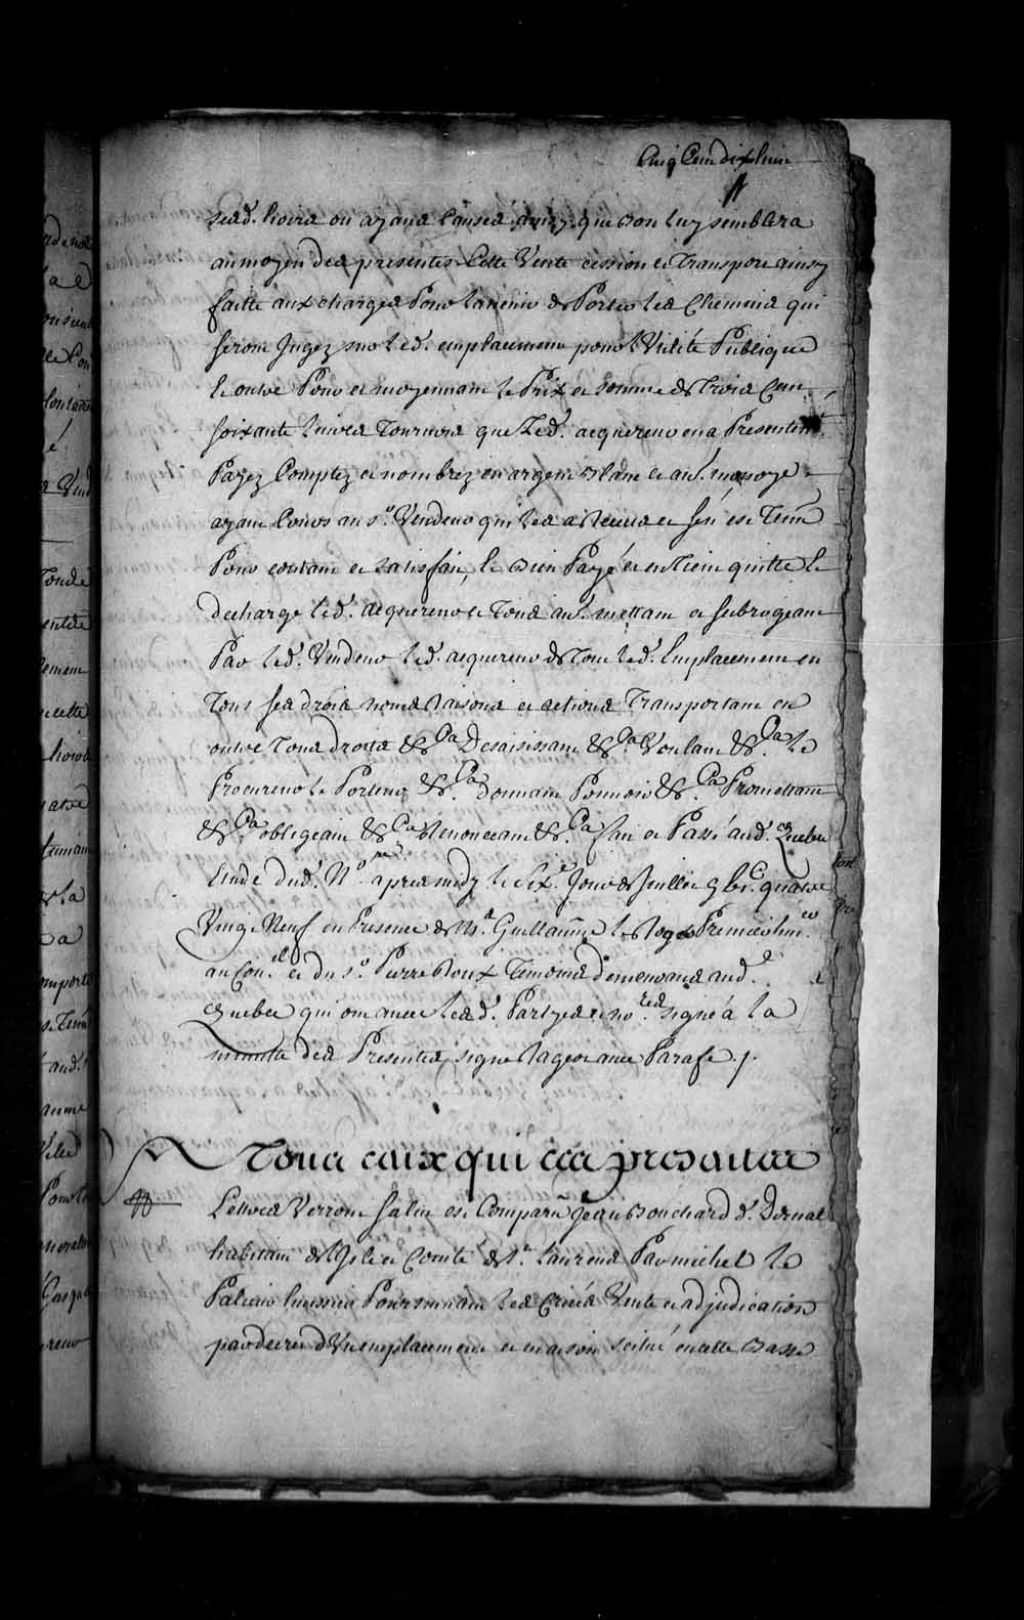 Cinq Cent dix huit
sesd. hoirs ou ayans causes ainsy que bon luy semblera
au moyen des presentes Cette Vente cession et Transport ainsy
faitte aux charges Pour Lavenir de Porter les Chemins qui
seront Jugez sur led. emplacement pour L'Utilité Publique
Et outre Pour et moyennant le Prix et somme de Trois Cens
soixante livres Tournois que Led. acquereur en a Presentemt.
Payez Comptez et nombrez en argent blanc et aut. monoye
ayant Cours au Sr. Vendeur qui les a receus et sen est Tenu
Pour content et satisfait, et bien Payé et en Tient quitte et
decharge led. acquereur et Tous aut. mettant et subrogeant
Par led. Vendeur led. acquereur de Tout led. Emplacement en
Tous ses droits noms raisons et actions Transportant en
outre Tous droits &ca Desaisissant &ca Voulant &ca le
Procureur le Porteur &ca donnant Pouvoir &ca Promettant
&ca obligeant &ca Renonceant &ca fait et Passé aud. Quebec
Etude dud. Nore. apres midy le Sixe. Jour de Juillet gbic. quatre
Vingt Neuf en Presence de Me. Guillaume Le Roger Premier huier.
au Conel. et du Sr. Pierre Roux Temoins demeurans aud.
Quebec qui ont avec lesd. Partyes et nore. signé a la
minutte des Presentes, signe Rageot avec Parafe ./.
A Tous ceux qui ces presentes
Lettres Verront salut est Comparu Jean Bouchard d. Dorval
habitant de L'Isle et Comté de St. Laurens Par michel Le
Palieur huissier Poursuivant les Criées Vente et adjudication
par decret d'Un emplacement et maison scitué en cette basse